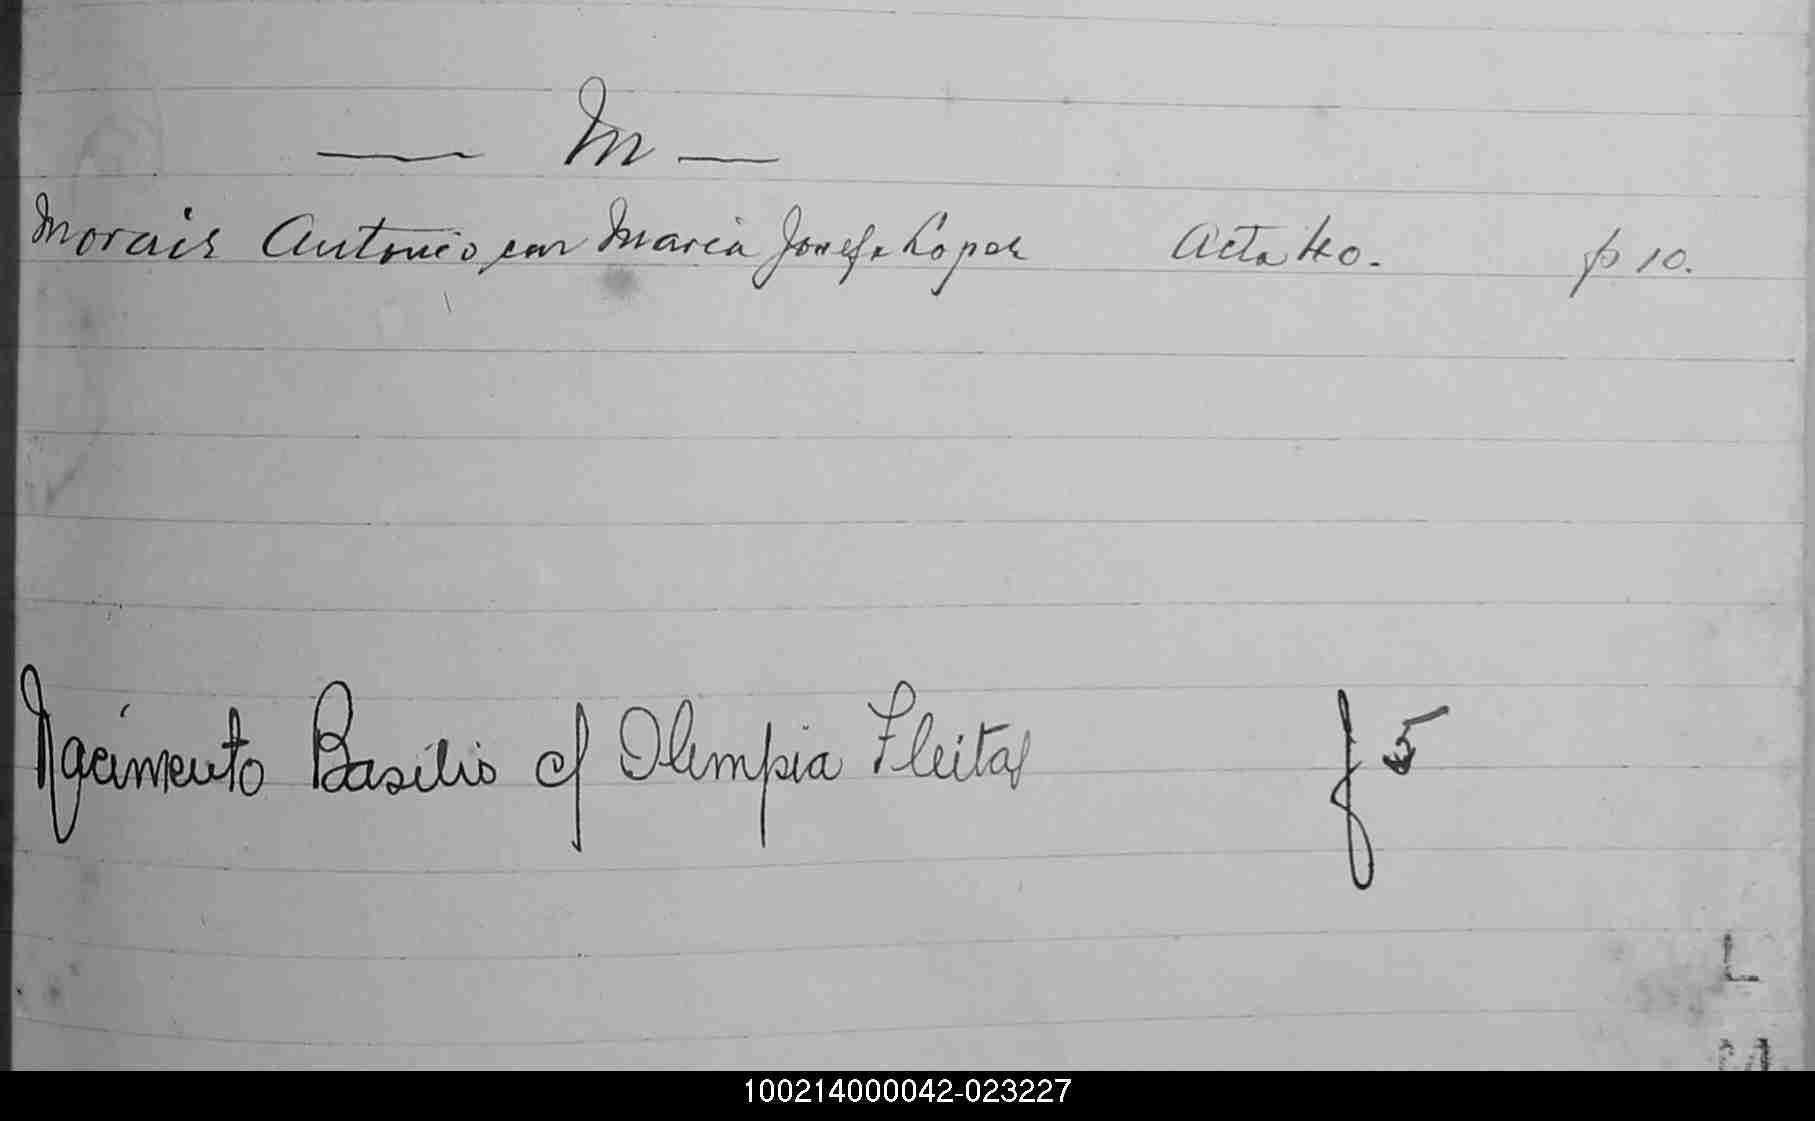 — M —
Morais Antonio con Maria Josefa Lopes Acta 40. f 10.
Nacimento Basilio c/ Olimpia Fleitas f 5
L
M
100214000042-023227